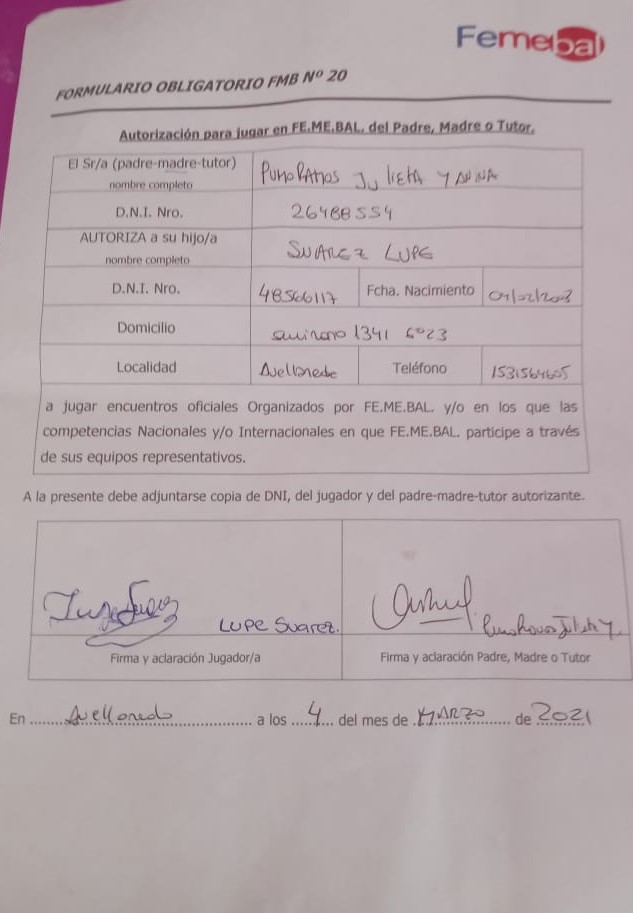 Femebal
FORMULARIO OBLIGATORIO FMB Nº 20
Autorización para jugar en FE.ME.BAL. del Padre, Madre o Tutor.
El Sr/a (padre-madre-tutor)
nombre completo
JuliEtA
D.N.I. Nro. 26488554
AUTORIZA a su hijo/a
nombre completo
SUAREZ LUPE
D.N.I. Nro. 48566117 Fcha. Nacimiento
Domicilio 1341
Localidad Avellaneda Teléfono 1531564605
a jugar encuentros oficiales Organizados por FE.ME.BAL. y/o en los que las
competencias Nacionales y/o Internacionales en que FE.ME.BAL. participe a través
de sus equipos representativos.
A la presente debe adjuntarse copia de DNI, del jugador y del padre-madre-tutor autorizante.
LUPE Suarez.
Firma y aclaración Jugador/a
Firma y aclaración Padre, Madre o Tutor
En Avellaneda a los 4 del mes de MARZO de 2021